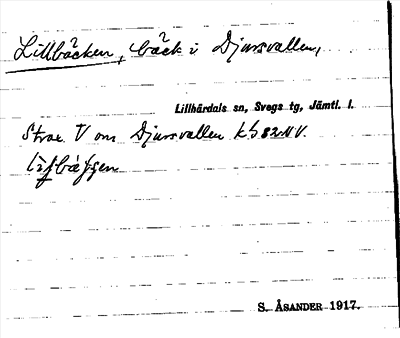 Lillbäcken, bäck i Djursvallen,
Lillhärdals sn, Svegs tg, Jämtl. l.
Strax V om Djursvallen kb 82NV.
S. ÅSANDER 1917.